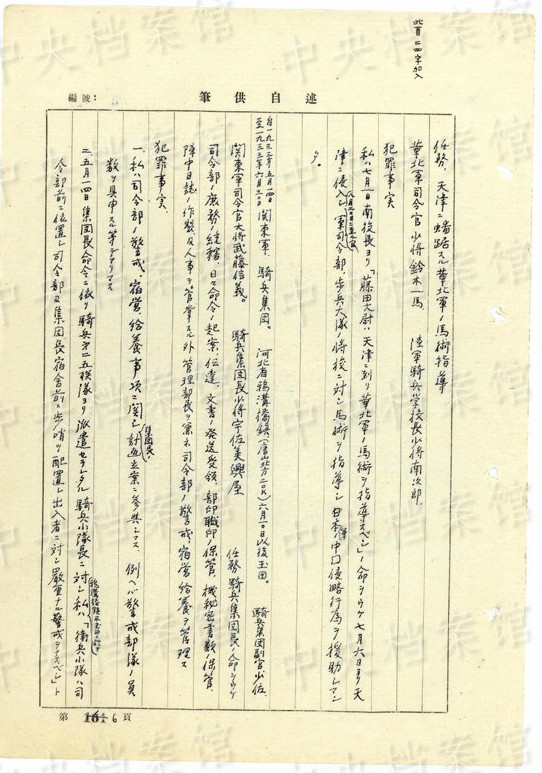 此頁二四字加入
編號：
述自供筆
任務、天津ニ蟠踞スル華北軍ノ馬術指導
華北軍司令官少将鈴木一馬、 陸軍騎兵学校長少将南次郎、
犯罪事実
私ハ七月一日南校長ヨリ「藤田大尉ハ天津ニ到リ華北軍ノ馬術ヲ指導スベシ」ノ命ヲウケ七月六日ヨリ天
津ニ侵入シ軍司令部、歩兵大隊ノ将校ニ対シ馬術ヲ指導シ日本ノ中国侵略行為ヲ援助シマシ
タ。
自一九三三年五月一四日
至一九三三年六月三〇日
関東軍、騎兵集団。 河北省鴉鴻橋鎮、(唐山北方二〇K)六月一〇日以後玉田。 騎兵集団副官少佐、
関東軍司令官大将武藤信義。 騎兵集団長少将宇佐美興屋 任務、騎兵集団長ノ命ヲウケ
司令部ノ庶務ノ統轄、日々命令ノ起案、伝達、文書ノ発送受領、部印職印ノ保管、機秘密書類ノ保管、
陣中日誌ノ作製及人事ヲ管掌スル外管理部長ヲ兼ネ司令部ノ警戒、宿営給養ヲ管理ス
犯罪事実、
一、私ハ司令部ノ警戒、宿営、給養事項ニ関シ集団長ノ計画立案ニ参与シマス 例ヘバ警戒部隊ノ員
数ヲ具申スル等デアリマス
二、五月一四日集団長命令ニ依リ騎兵第二五聯隊ヨリ派遣セラレタル騎兵小隊長ニ対シ私ハ「衛兵小隊ハ司
令部前ニ位置シ司令部及集団長宿舎前ニ歩哨ヲ配置シ出入者ニ対シ厳重ナル警戒ヲナスベシ」ト
第 6 頁
中央档案馆